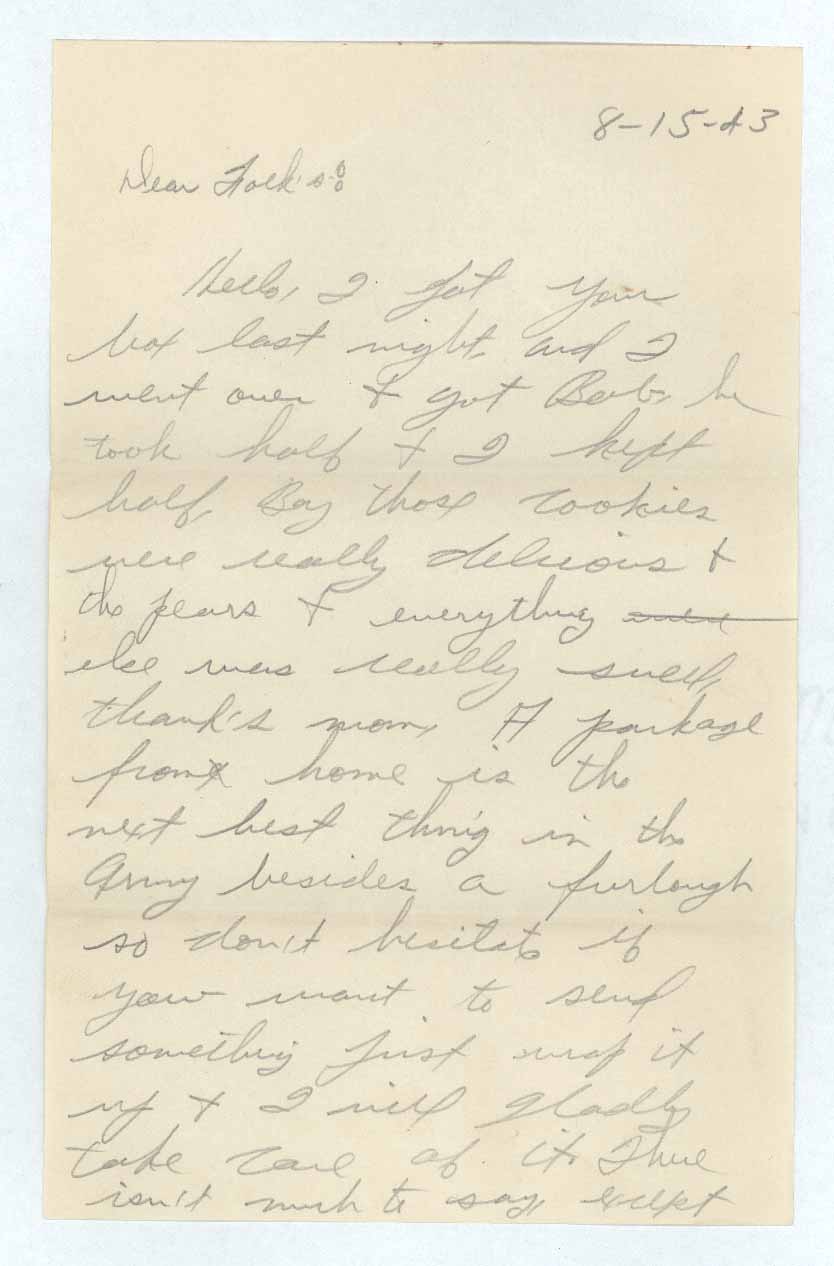 8-15-43
Dear Folk's:
Hello, I got your
box last night, and I
went over & got Bob, he
took half & I kept
half, Boy those cookies
were really delicious &
the pears & everything
else was really swell,
thank's mom, A package
from home is the
next best thing in the
Army besides a furlough
so don't hesitate if
you want to send
something just wrap it
up & I will gladly
take care of it. There
isn't much to say, except